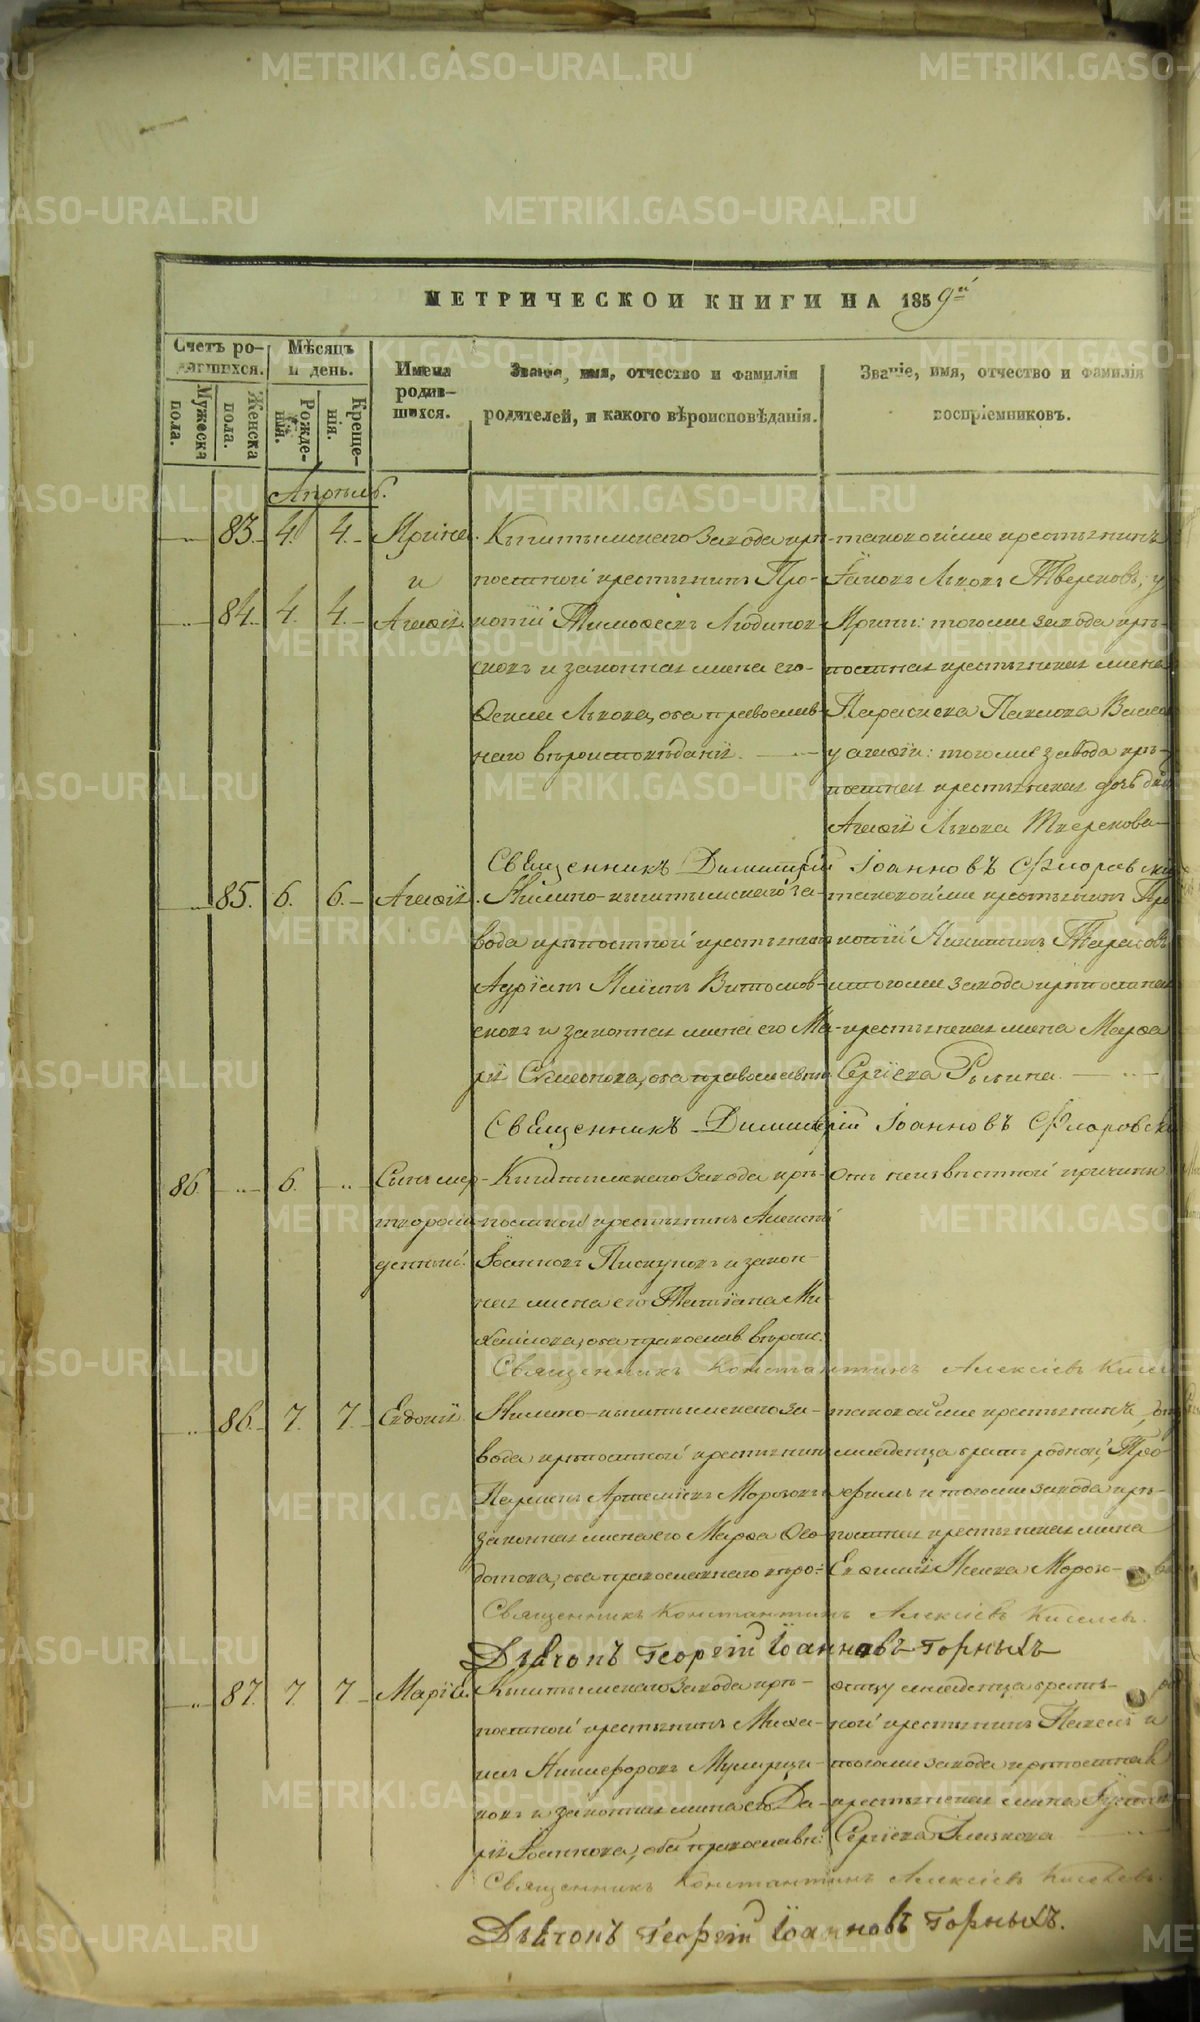 МЕТРИЧЕСКОЙ КНИГИ НА 1859й
Счетъ ро-
дившихся.
Мужеска пола.
Женска пола.
Мѣсяцъ
и день.
Рожде-
нія.
Креще-
нія.
Имена
родив-
шихся.
Званіе, имя, отчество и фамилія
родителей, и какого вѣроисповѣданія.
Званіе, имя, отчество и фамилія
воспріемниковъ.
Апрѣль.
83. 4. 4. Ирина
и
84. 4. 4. Агафія.
Кыштымскаго завода крѣ-
постной крестьянинъ Про-
копій Тимофеевъ
и законная жена его
Львова, оба православ-
наго вѣроисповѣданія.
таковой же крестьянинъ
Львовъ Тверековъ, у
Ирины: того же завода крѣ-
постная крестьянская жена
Параскева Павлова
у Агафіи: того же завода крѣ-
постная крестьянская дочь
Агафія Львова Тверекова
Священникъ Димитрій Іоанновъ Флоровскій
85. 6. 6. Агафія.
Нижно-кыштымскаго за-
вода крѣпостной крестьянинъ
Адріанъ
и законная жена его Ма-
рія Семенова, оба православн:
таковой же крестьянинъ Про-
копій Никитинъ Тарасовъ
и того же завода крѣпостная
крестьянская жена Марфа
Сергіева
Священникъ Димитрій Іоанновъ Флоровскій
86. 6. Сынъ мер-
творож-
денный.
Кыштымскаго завода крѣ-
постной крестьянинъ Алексѣй
Іоанновъ Пискуновъ и закон-
ная жена его Татіана Ми-
хайлова, оба православ. вѣроис:
Отъ неизвѣстной причины
Священникъ Константинъ Алексіевъ Киселевъ
86. 7. 7. Евдокія
Нижно-кыштымскаго за-
вода крѣпостной крестьянинъ
Парменъ Артеміевъ Морозовъ и
законная жена его Марфа Ѳео-
дотова, оба православнаго вѣро:
таковой же крестьянинъ, отцу
младенца братъ родной, Тро-
фимъ и того же завода крѣ-
постная крестьянская жена
Евфимія Морозо-
Священникъ Константинъ Алексіевъ Киселевъ.
Діаконъ Георгій Іоанновъ Горныхъ
87. 7. 7. Марія.
Кыштымскаго завода крѣ-
постной крестьянинъ Миха-
илъ Никифоровъ
и законная жена его Да-
рія Іоаннова, оба православн:
отцу младенца братъ
ной крестьянинъ Павелъ и
того же завода крѣпостная
крестьянская жена
Сергіева Глазкова
Священникъ Константинъ Алексіевъ Киселевъ.
Діаконъ Георгій Іоанновъ Горныхъ.
METRIKI.GASO-URAL.RU